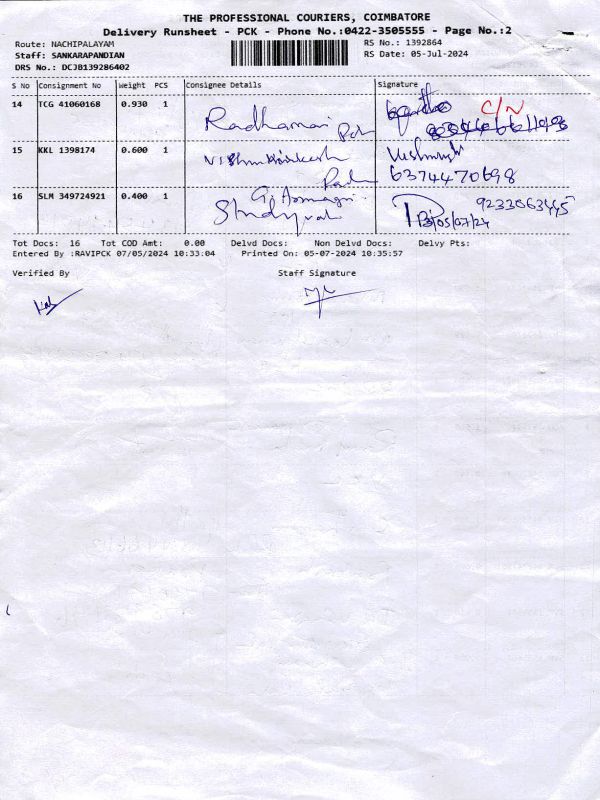 THE PROFESSIONAL COURIERS, COIMBATORE
Delivery Runsheet - PCK - Phone No.:0422-3505555 - Page No.:2
Route: NACHIPALAYAM
RS No.: 1392864
Staff: SANKARAPANDIAN
RS Date: 05-Jul-2024
DRS No.: DCJB139286402
S No Consignment No Weight PCS Consignee Details Signature
14 TCG 41060168 0.930 1 Radhamani C/N
15 KKL 1398174 0.600 1
6374470698
16 SLM 349724921 0.400 1 9233063445
05/07/24
Tot Docs: 16 Tot COD Amt: 0.00 Delvd Docs: Non Delvd Docs: Delvy Pts:
Entered By :RAVIPCK 07/05/2024 10:33:04 Printed On: 05-07-2024 10:35:57
Verified By Staff Signature